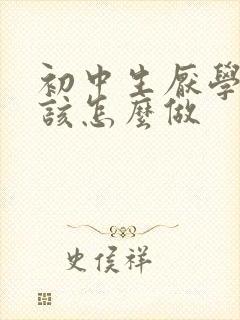 初中生厭學
該怎麼做
史侯祥